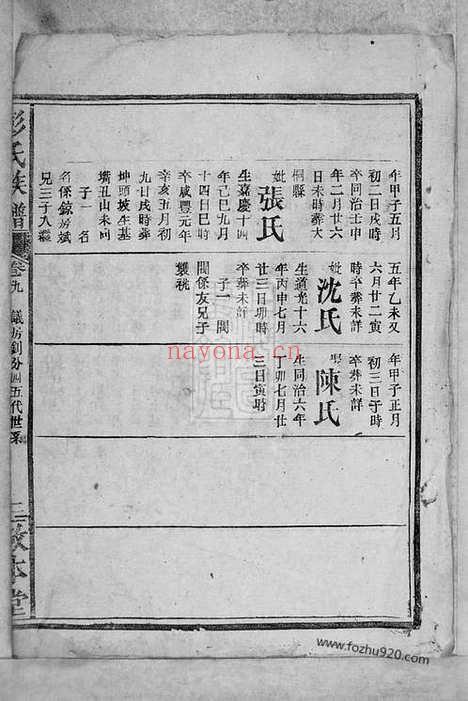 年甲子五月
初二日戌時
卒同治壬申
年二月廿六
日未時葬大
桐縣
妣張氏
生嘉慶十四
年己巳九月
十四日巳時
卒咸豐元年
辛亥五月初
九日戌時葬
坤頭坡生基
嘴丑山未向
子一 名
名係錦房斌
兄三子入繼
五年乙未又
六月廿二寅
時卒葬未詳
妣沈氏
生道光十六
年丙申七月
廿三日卯時
卒葬未詳
子一 閏
閏係友兄子
襲祧
年甲子正月
初三日子時
卒葬未詳
配陳氏
生同治六年
丁卯七月廿
三日寅時
彭氏族譜
卷九
議房釗分四五代世系
三敬本堂
nayona.cn
www.fozhu920.com